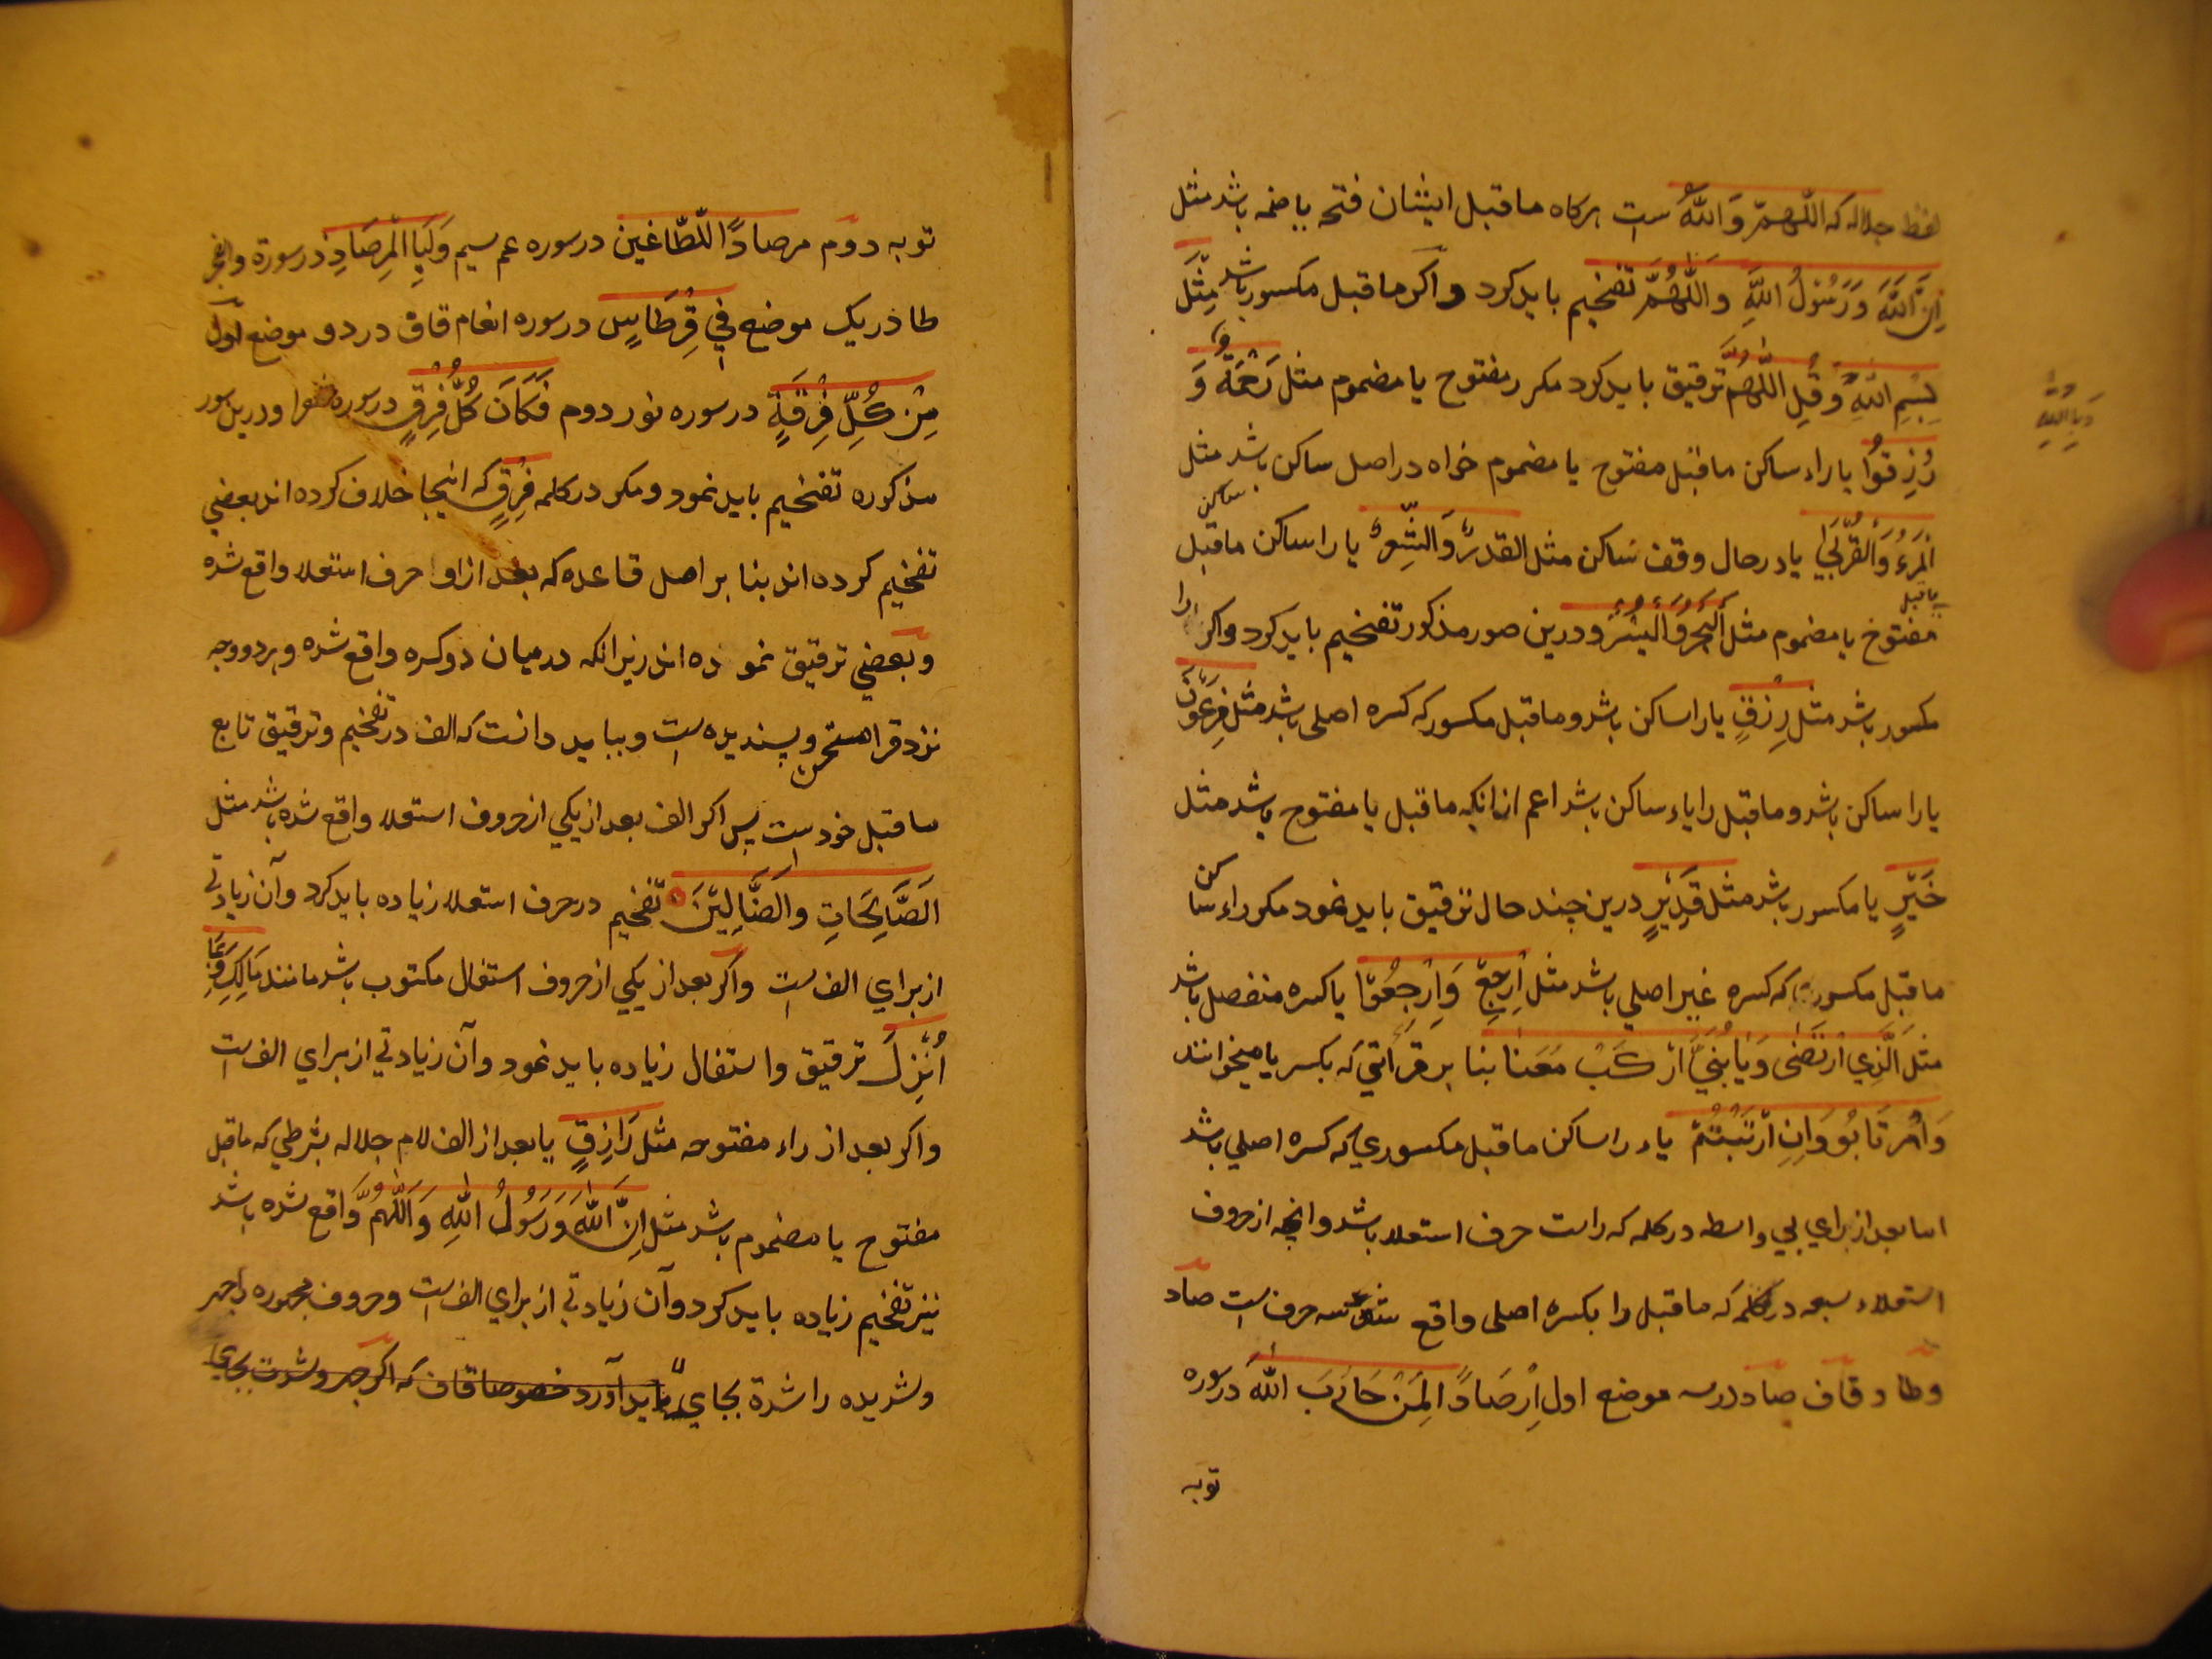 لفظ جلاله که اللّهمّ وَاللهُ ست هرکاه ماقبل ایشان فتحه یا ضمه باشد مثل
اِنَّ اللهَ وَرَسُوْلُ اللهِ وَاللّٰهُمَّ تفخیم باید کرد واکر ماقبل مکسور باشد مِثْلَ
بِسْمِ اللهِ وَقُلِ اللّٰهُمَّ ترقیق باید کرد مکر ر مفتوح یا مضموم مثل رَحْمَةٌ وَ
رُزِقُوْا یا راء ساکن ماقبل مفتوح یا مضموم خواه در اصل ساکن باشد مثل
اَلْمَرْءُ وَالْقُرْبٰی یا درحال وقف ساکن مثل القدر وَ یا را ساکن ماقبل ساکن
ماقبل مفتوح یا مضموم مثل وَالْیُسْرُ ودرین صور مذکور تفخیم باید کرد واکر را
مکسور باشد مثل رِزْقٍ یا را ساکن باشد وماقبل مکسور که کسره اصلی باشد مثل فِرْعَوْنَ
یا را ساکن باشد وماقبل را یاء ساکن باشد اعم ازانکه ماقبل یا مفتوح باشد مثل
خَیْرٍ یا مکسور باشد مثل قَدِیْرٍ درین چند حال ترقیق باید نمود مکر راء ساکن
ماقبل مکسور که کسره غیر اصلی باشد مثل اِرْجِعْ وَاِرْجِعُوْا یا کسره منفصل باشد
مثل الَّذِی ارْتَضٰی وَیَا بُنَیَّ ارْکَبْ مَعَنَا بنا بر قراتی که بکسر یا میخوانند
وَاَمِ ارْتَابُو وَاِنِ ارْتَبْتُمْ یاء را ساکن ماقبل مکسوری که کسره اصلی باشد
اما بعد از برای بی واسطه در کلمه که راست حرف استعلا باشد وانچه از حروف
استعلاء سبعه در کلمه که ماقبل را بکسره اصلی واقع شده سه حرف ست صاد
وطا و قاف صاد در سه موضع اول اِرْصَادًا لِمَنْ حَارَبَ اللهَ در سوره
توبه
توبه دوم مرصادًا للطّاغین در سوره عم سیم وَ لَبِا الْمِرْصَادِ در سورة والفجر
طا در یک موضع فِی قِرْطَاسٍ در سوره انعام قاف در دو موضع اول
مِنْ کُلِّ فِرْقَةٍ در سوره نور دوم فَکَانَ کُلُّ فِرْقٍ در سوره ودریل سور
مذکوره تفخیم باید نمود ومکر در کلمه فِرْقٍ که اینجا خلاف کرده اند بعضی
تفخیم کرده اند بنا بر اصل قاعده که بعد ازاو حرف استعلا واقع شده
وبعضی ترقیق نموده اند زیرا نکه درمیان دو کسره واقع شده وهر دو وجه
نزد قرا مستحسن وپسندیده ست وبباید دانست که الف در تفخیم وترقیق تابع
ماقبل خودست پس اکر الف بعد از یکی از حروف استعلا واقع شده باشد مثل
اَلصَّالِحَاتِ وَالضَّالِّیْنَ تفخیم در حرف استعلا زیاده باید کرد وآن زیادتی
از برای الف ست واکر بعد از یکی از حروف استفال مکتوب باشد مانند مَالِکِ وَبِمَا
اُنْزِلَ ترقیق واستفال زیاده باید نمود وآن زیادتی از برای الف ست
واکر بعد از راء مفتوحه مثل رَازِقٍ یا بعد از الف لام جلاله بشرطی که ماقبل
مفتوح یا مضموم باشد مثل اِنَّ اللهَ وَرَسُوْلُ اللهِ وَاللّٰهُمَّ واقع شده باشد
نیز تفخیم زیاده باید کرد وآن زیادتی از برای الف ست وحروف مجهوره را جهر
وشدیده را شدة بجای باید آورد خصوصا قاف که اکر جهر وشدت بجای